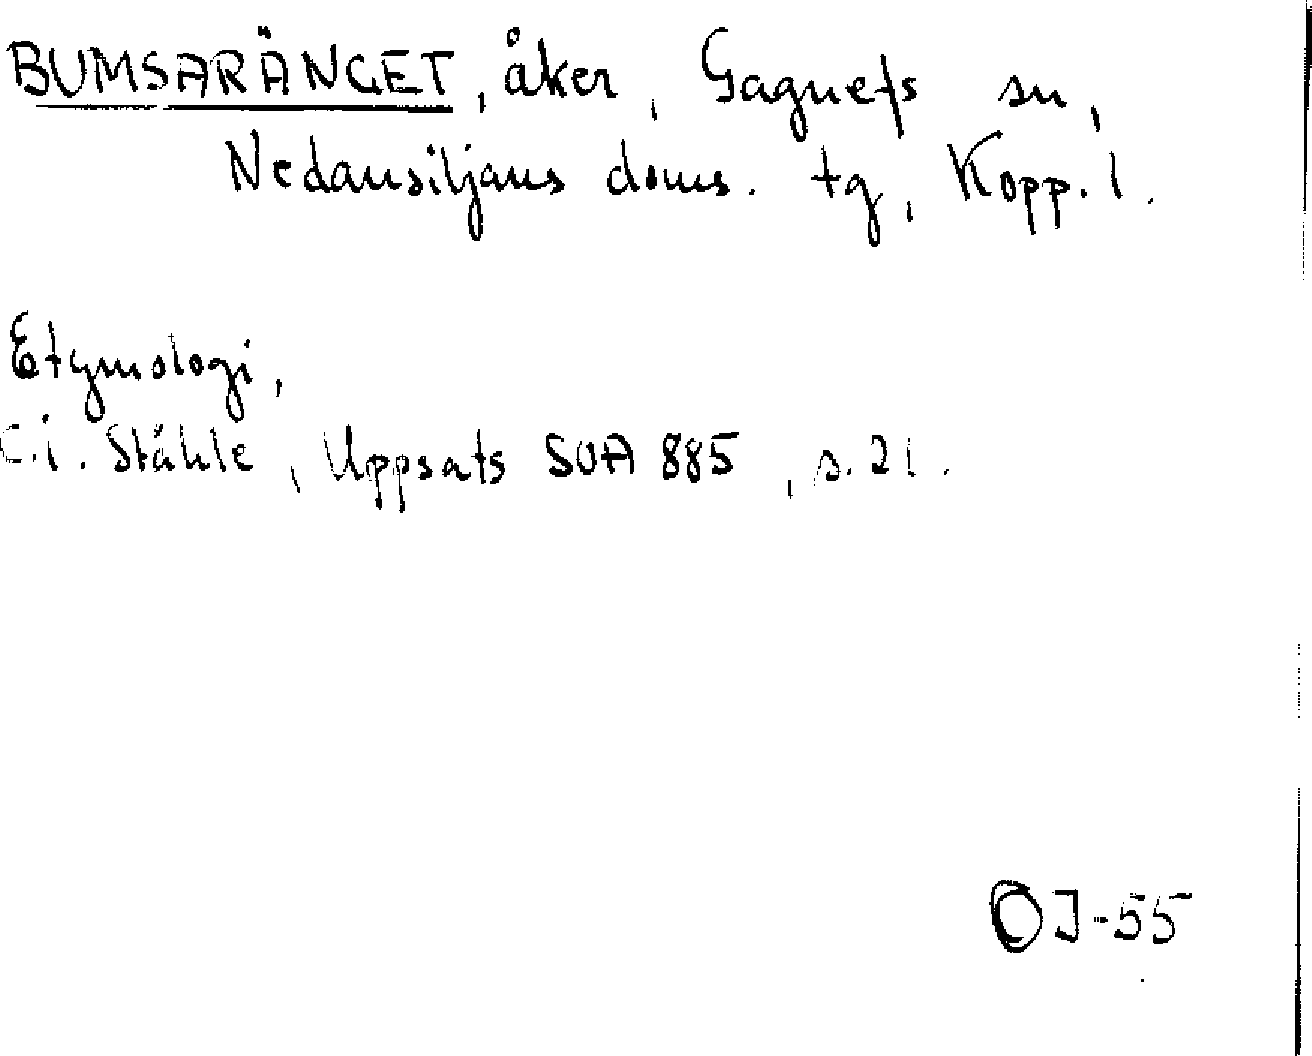 BUMSARÄNGET, åker, Gagnefs sn,
Nedansiljans doms. tg, Kopp. l.
Etymologi,
C.I. Ståhle, Uppsats SOA 885, s. 21.
OJ-55